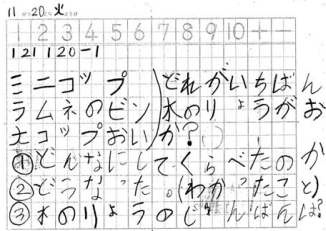 11 月 20 日 火
1 2 3 4 5 6 7 8 9 10 + -
121 120-1
ミニコップ)どれがいちばん
ラムネのビン)水のりょうがお
大コップおいか?
①どんなにしてくらべたのか
②どうなった。(わかったこと)
③水のりょうのじゅんばんは?